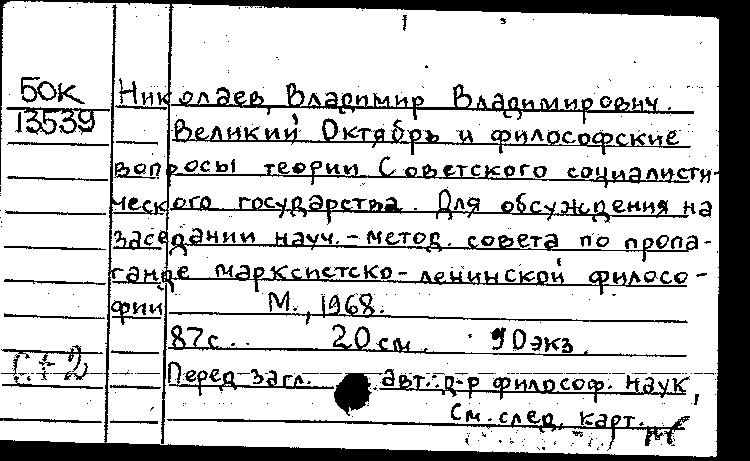 БОК
13539
Николаев, Владимир Владимирович.
Великий Октябрь и философские
вопросы теории Советского социалисти-
ческого государства. Для обсуждения на
заседании науч.-метод. совета по пропа-
ганде марксистско-ленинской филосо-
фии М., 1968.
87с. 20 см. 90экз.
С+2
Перед загл. авт.: д-р философ. наук,
См. след. карт.